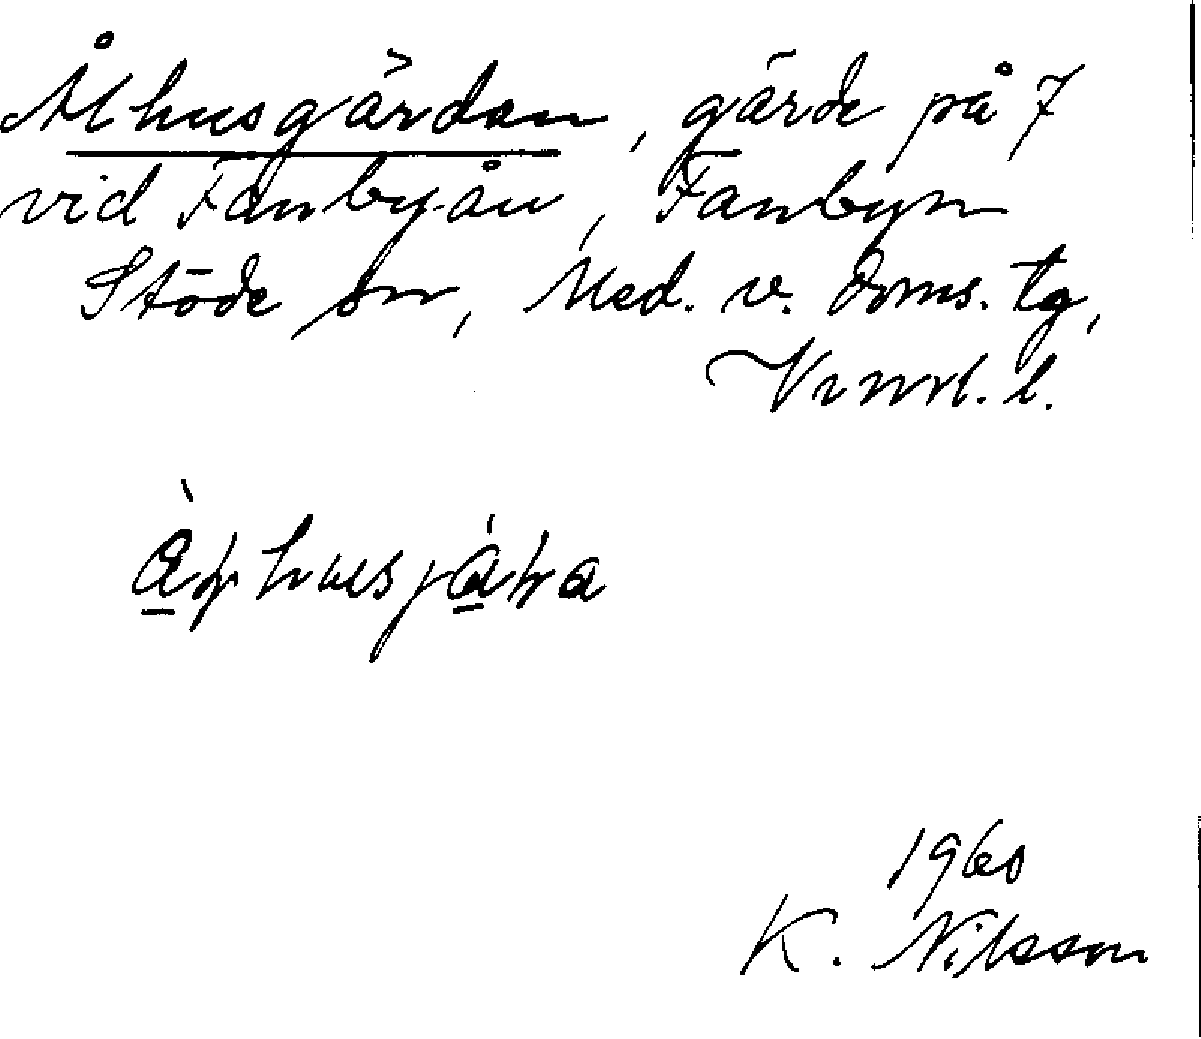 Ålhusgärdan, gärde på 7
vid Fanbyån, Fanbyn
Stöde sn, Med. v. doms. tg,
Vrnrl. l.
1960
K. Nilsson